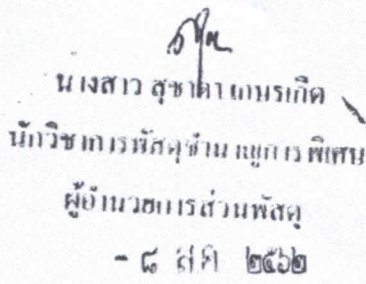 นางสาว สุชาดา เกษรเกิด
นักวิชาการพัสดุชำนาญการพิเศษ
ผู้อำนวยการส่วนพัสดุ
- ๘ ส.ค. ๒๕๖๒